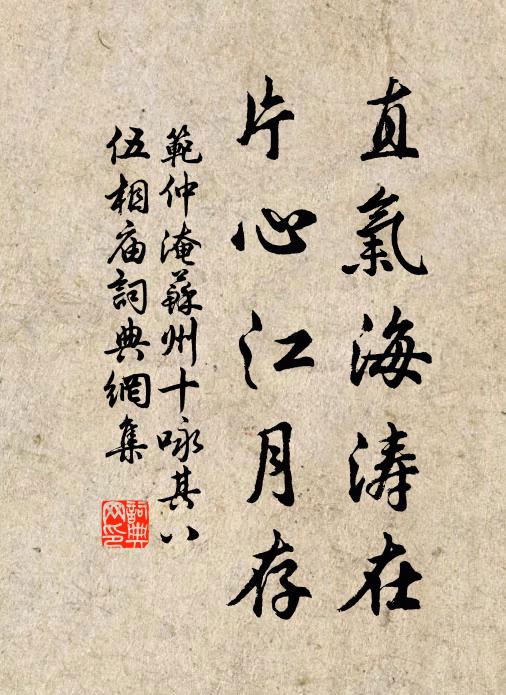 直氣海涛在
片心江月存
範仲淹蘇州十咏其八
伍相庙詞典網集
詞典網印